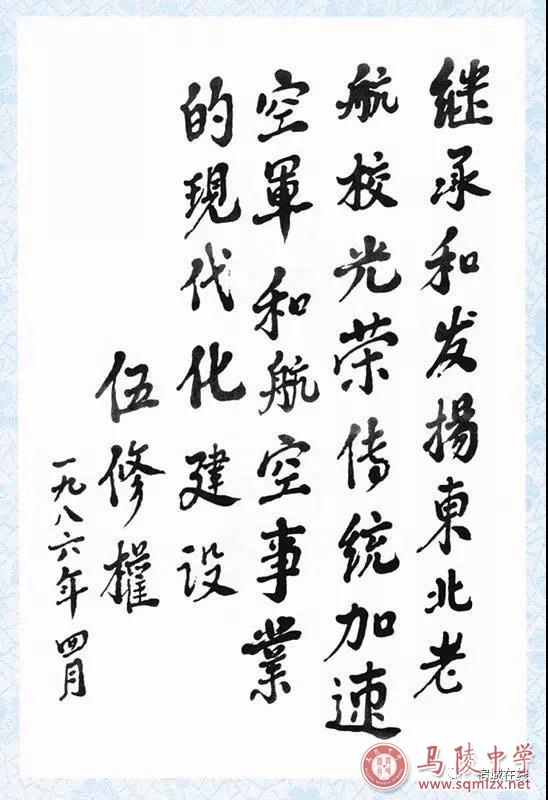 继承和发揚東北老
航校光荣傳統加速
空軍和航空事業
的現代化建设
伍修權
一九八六年四月
马陵中学
宿城在线
www.sqmlzx.net